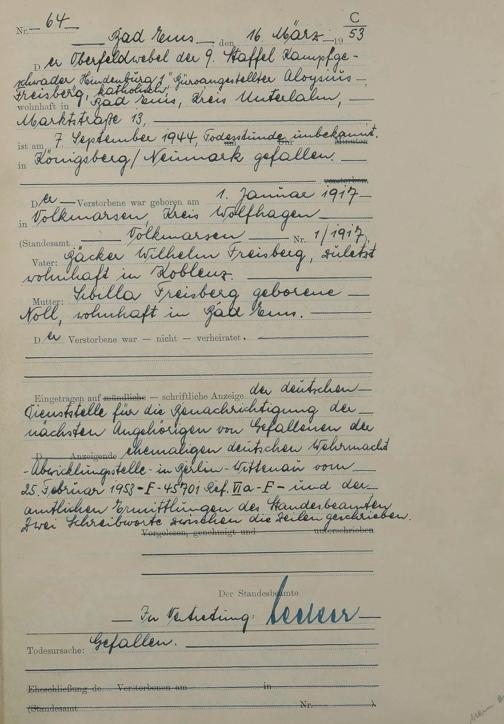 Nr. 64
C
Bad Ems den 16. März 1953
D er Oberfeldwebel der 9. Staffel Kampfge-
schwader Hindenburg 1 Büroangestellter Aloysius
Freisberg, katholisch,
wohnhaft in Bad Ems, Kreis Unterlahn,
Marktstraße 13,
ist am 7. September 1944, Todesstunde unbekannt.
um Uhr Minuten
in Königsberg/Neumark gefallen.
verstorben.
D er Verstorbene war geboren am 1. Januar 1917
in Volkmarsen, Kreis Wolfhagen
(Standesamt Volkmarsen Nr. 1/1917)
Vater: Bäcker Wilhelm Freisberg, zuletzt
wohnhaft in Koblenz.
Mutter: Sibilla Freisberg geborene
Noll, wohnhaft in Bad Ems.
D er Verstorbene war — nicht — verheiratet.
Eingetragen auf mündliche — schriftliche Anzeige der deutschen
Dienststelle für die Benachrichtigung der
nächsten Angehörigen von Gefallenen der
D Anzeigende ehemaligen deutschen Wehrmacht
-Abwicklungstelle- in Berlin-Wittenau vom
25. Februar 1953 - F - 45701 Ref. VI a - F - und der
amtlichen Ermittlungen des Standesbeamten
Zwei Schreibworte zwischen die Zeilen geschrieben.
Vorgelesen, genehmigt und unterschrieben
Der Standesbeamte
In Vertretung:
Todesursache: Gefallen.
Eheschließung de Verstorbenen am in
(Standesamt Nr. )